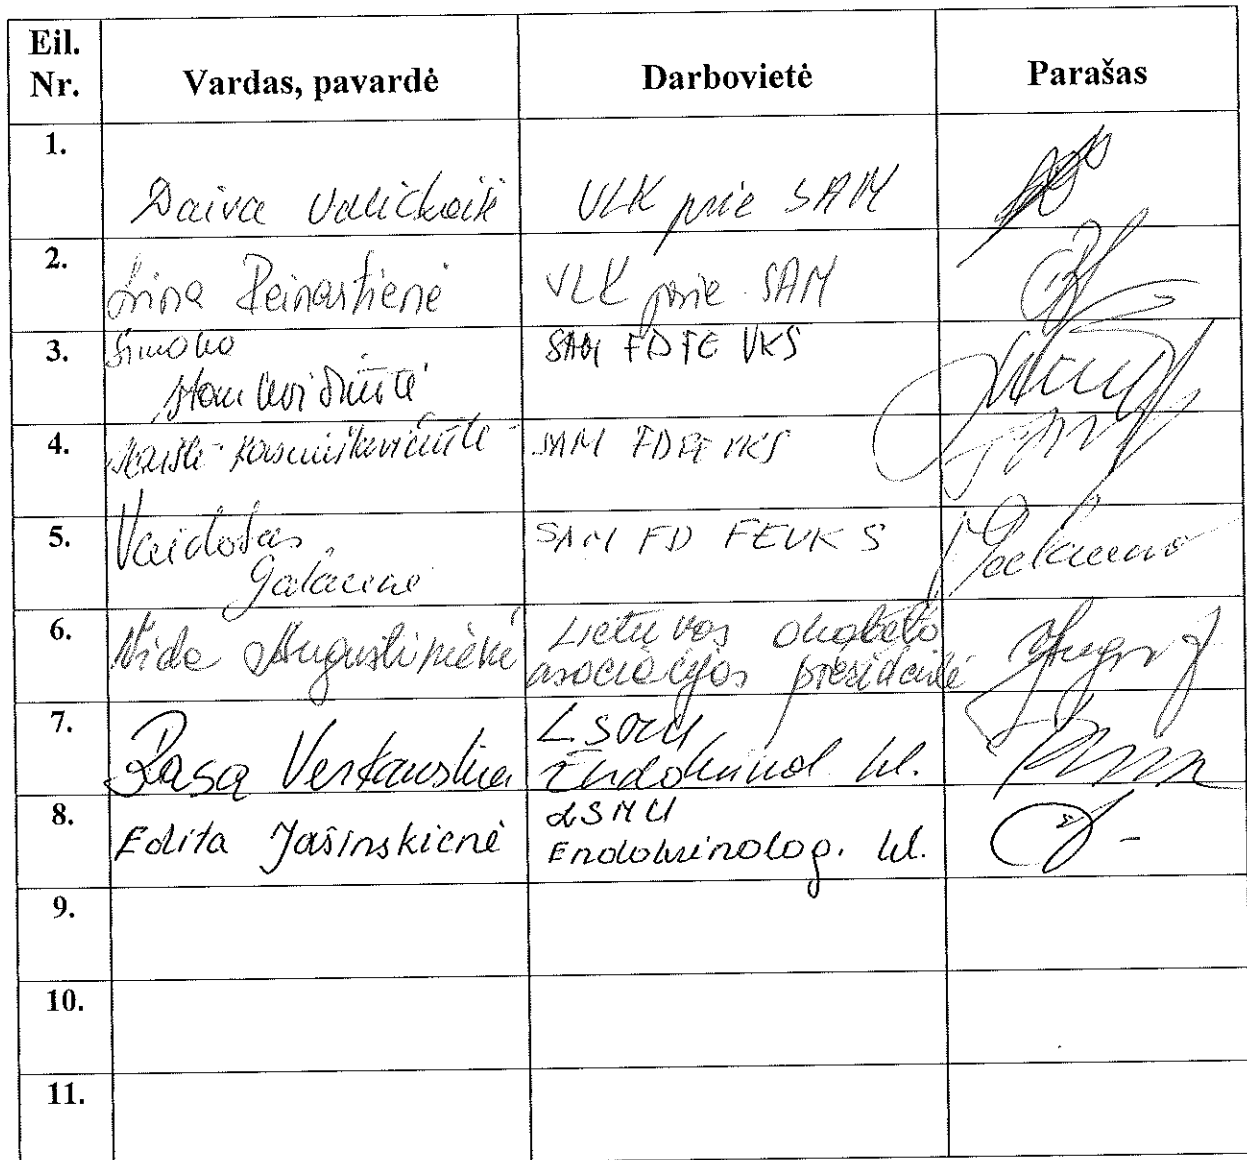 Eil. Nr. Vardas, pavardė Darbovietė Parašas
1. Daiva Valickaitė VLK prie SAM
2. Irina Peinastienė VLK prie SAM
3. Simona SAM FDFE VKS
4. SAM FDFE VKS
5. Vaidotas SAM FD FEVKS
6. Vida Augustinienė Lietuvos diabeto
asociacijos prezidentė
7. Rasa Verkauskienė LSMU
Endokrinol. kl.
8. Edita Jašinskienė LSMU
Endokrinolog. kl.
9.
10.
11.